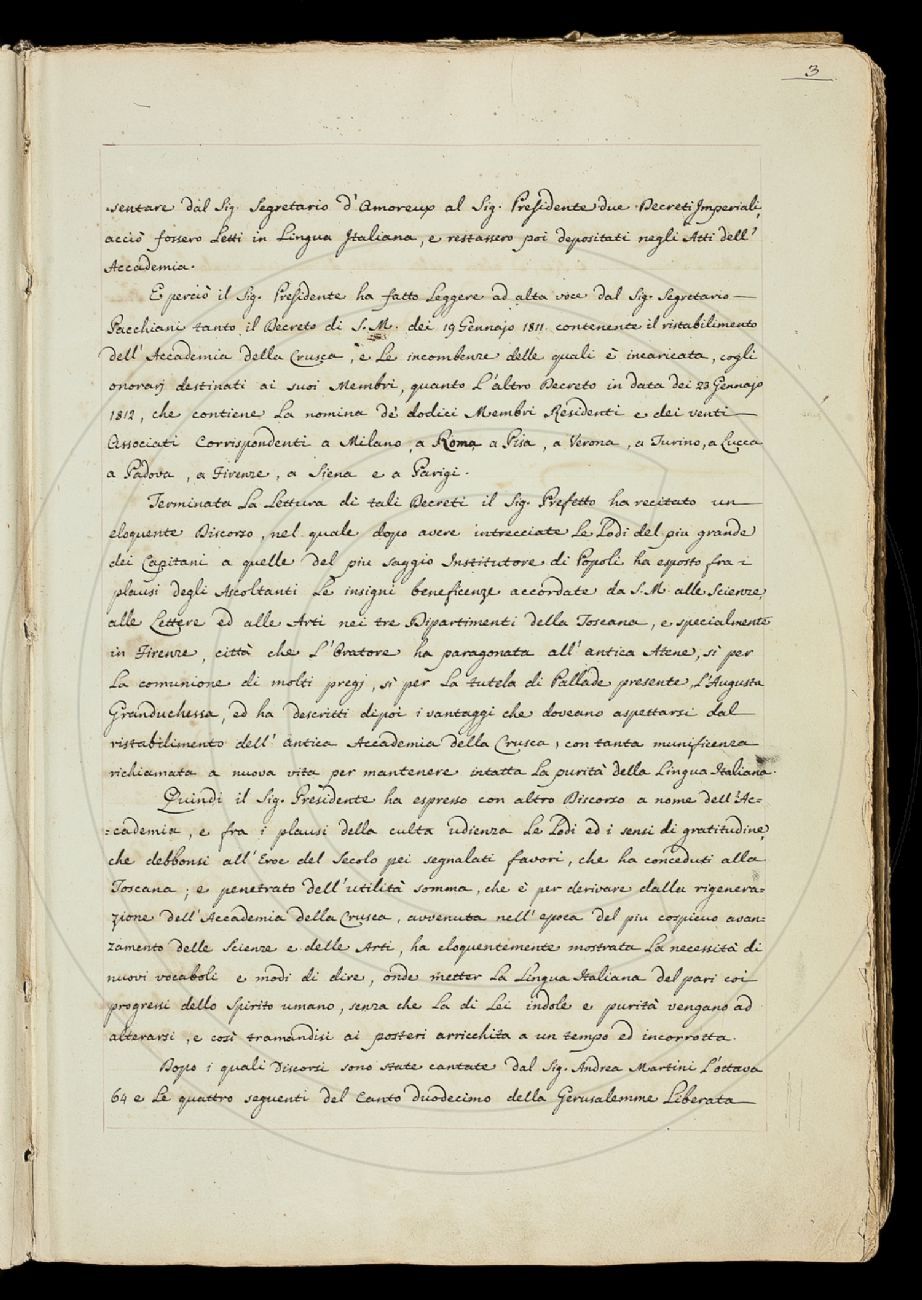 3
sentare dal Sig. Segretario d'Amoreux al Sig. Presidente due Decreti Imperiali,
acciò fossero Letti in Lingua Italiana, e restassero poi depositati negli Atti dell'
Accademia.
E perciò il Sig. Presidente ha fatto Leggere ad alta voce dal Sig. Segretario
Pacchiani tanto il Decreto di S. M. dei 19 Gennajo 1811. contenente il ristabilimento
dell'Accademia della Crusca, e Le incombenze delle quali è incaricata, cogli
onorarj destinati ai suoi Membri, quanto L'altro Decreto in data dei 23 Gennajo
1812, che contiene La nomina de' dodici Membri Residenti e dei venti
Associati Corrispondenti a Milano, a Roma, a Pisa, a Verona, a Turino, a Lucca
a Padova, a Firenze, a Siena e a Parigi.
Terminata La Lettura di tali Decreti il Sig. Prefetto ha recitato un
eloquente Discorso, nel quale dopo avere intrecciate Le Lodi del piu grande
dei Capitani a quelle del piu saggio Institutore di Popoli ha esposto fra i
plausi degli Ascoltanti Le insigni beneficenze accordate da S. M. alle Scienze,
alle Lettere ed alle Arti nei tre Dipartimenti della Toscana, e specialmente
in Firenze, città che L'Oratore ha paragonata all'antica Atene, sì per
La comunione di molti pregj, sì per La tutela di Pallade presente, L'Augusta
Granduchessa, ed ha descritti dipoi i vantaggi che doveano aspettarsi dal
ristabilimento dell'antica Accademia della Crusca, con tanta munificenza
richiamata a nuova vita per mantenere intatta La purità della Lingua Italiana.
Quindi il Sig. Presidente ha espresso con altro Discorso a nome dell'Ac=
=cademia, e fra i plausi della culta udienza Le Lodi ed i sensi di gratitudine,
che debbonsi all'Eroe del Secolo pei segnalati favori, che ha conceduti alla
Toscana; e penetrato dell'utilità somma, che è per derivare dalla rigenera=
zione dell'Accademia della Crusca, avvenuta nell'epoca del piu cospicuo avan=
zamento delle Scienze e delle Arti, ha eloquentemente mostrata La necessità di
nuovi vocaboli e modi di dire, onde metter La Lingua Italiana del pari coi
progressi dello Spirito umano, senza che La di Lei indole e purità vengano ad
alterarsi, e così tramandisi ai posteri arricchita a un tempo ed incorrotta.
Dopo i quali Discorsi sono state cantate dal Sig. Andrea Martini L'ottava
64 e Le quattro seguenti del Canto duodecimo della Gerusalemme Liberata